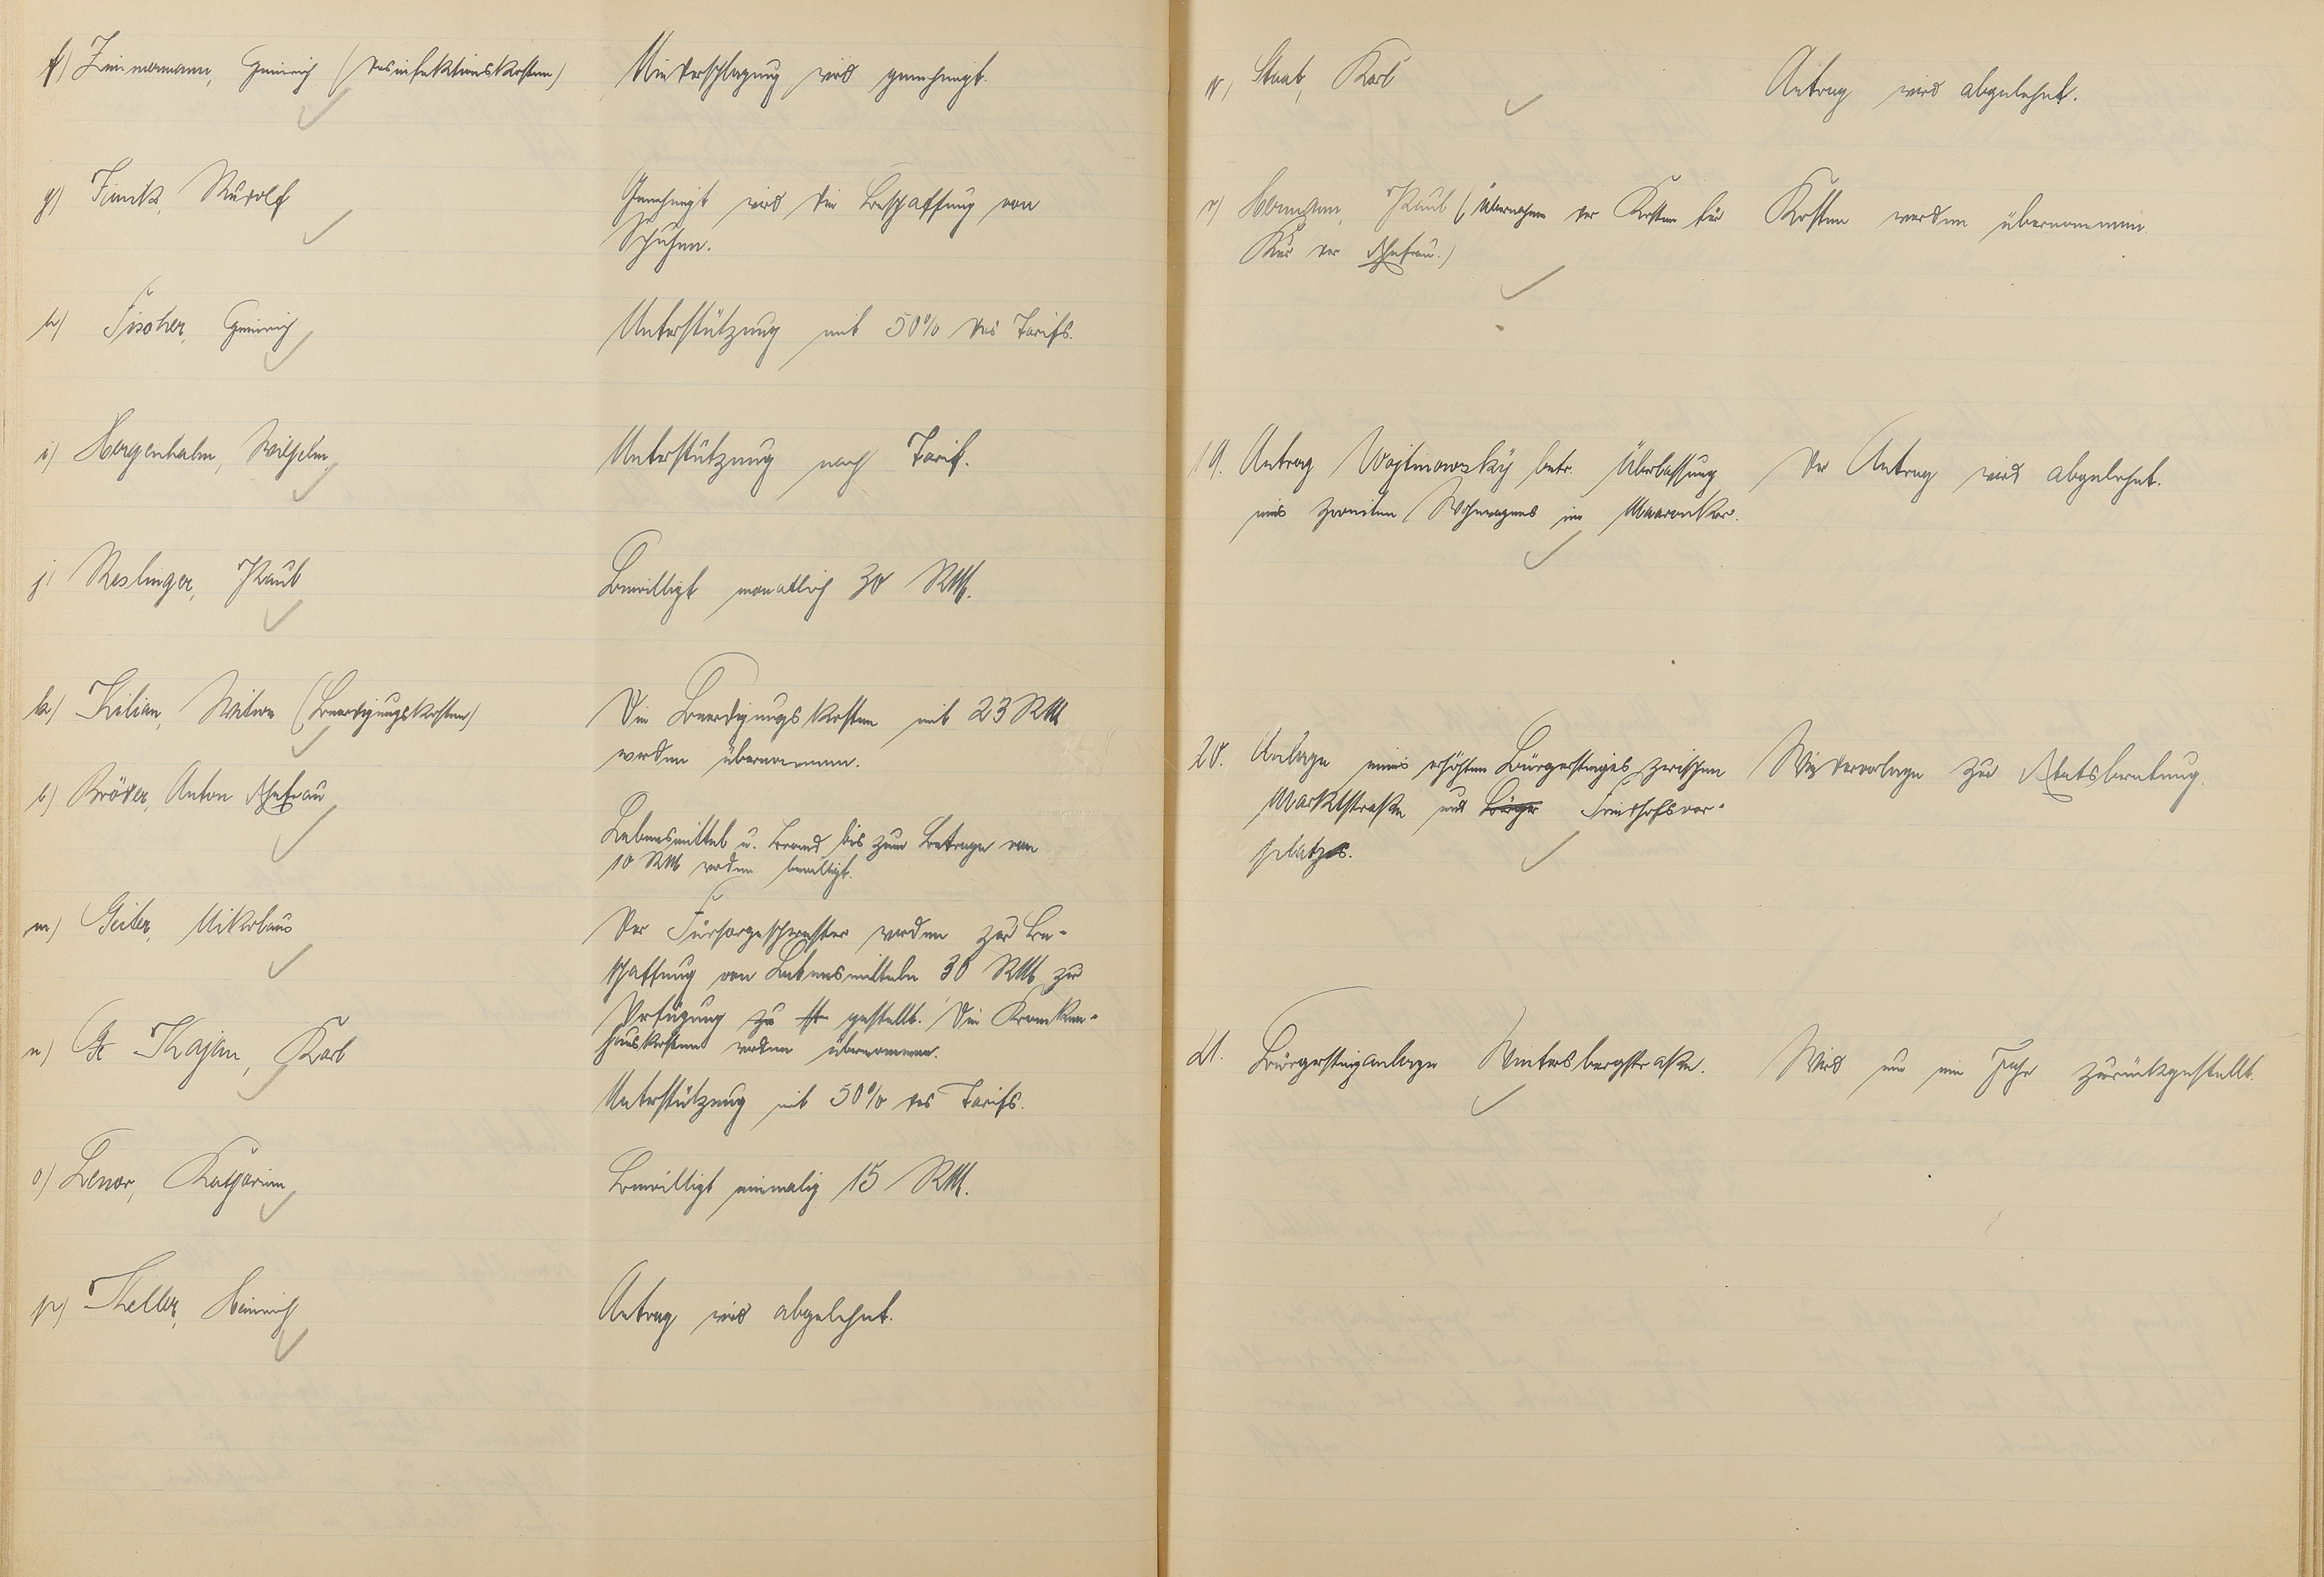 f) Zimmermann, Heinrich (Desinfektionskosten)
Niederschlagung wird genehmigt.
g) Funk, Rudolf
Genehmigt wird die Beschaffung von
Schuhen.
h) Fischer, Heinrich
Unterstützung mit 50% des Tarifs.
i) Hergenhahn, Wilhelm
Unterstützung nach Tarif.
j) Reslinger, Paul
Bewilligt monatlich 30 RM.
k) Kilian, Witwe (Beerdigungskosten)
Die Beerdigungskosten mit 23 RM
werden übernommen.
l) Bröder, Anton Ehefrau
Lebensmittel u. Brand bis zum Betrage von
10 RM werden bewilligt.
m) Geiter, Nikolaus
Der Fürsorgeschwester werden zur Be-
schaffung von Lebensmitteln 30 RM zur
Verfügung zu gestellt. Die Kranken-
hauskosten werden übernommen.
n) Kajan, Karl
Unterstützung mit 50% des Tarifs.
o) Lenor, Katharina
Bewilligt einmalig 15 RM.
p) Keller, Heinrich
Antrag wird abgelehnt.
q) Staab, Karl
Antrag wird abgelehnt.
r) Hermann, Paul (Übernahme der Kosten für
Kur der Ehefrau.)
Kosten werden übernommen.
19. Antrag Wojtinowsky betr. Überlassung
eines zweiten Wohnwagens im Maaracker.
Der Antrag wird abgelehnt.
20. Anlage eines erhöhten Bürgersteiges zwischen
Marktstraße und Bürger Friedhofsvor-
platzs.
Wiedervorlage zur Etatsberatung.
21. Bürgersteiganlage Wintersbergstraße.
Wird um ein Jahr zurückgestellt.